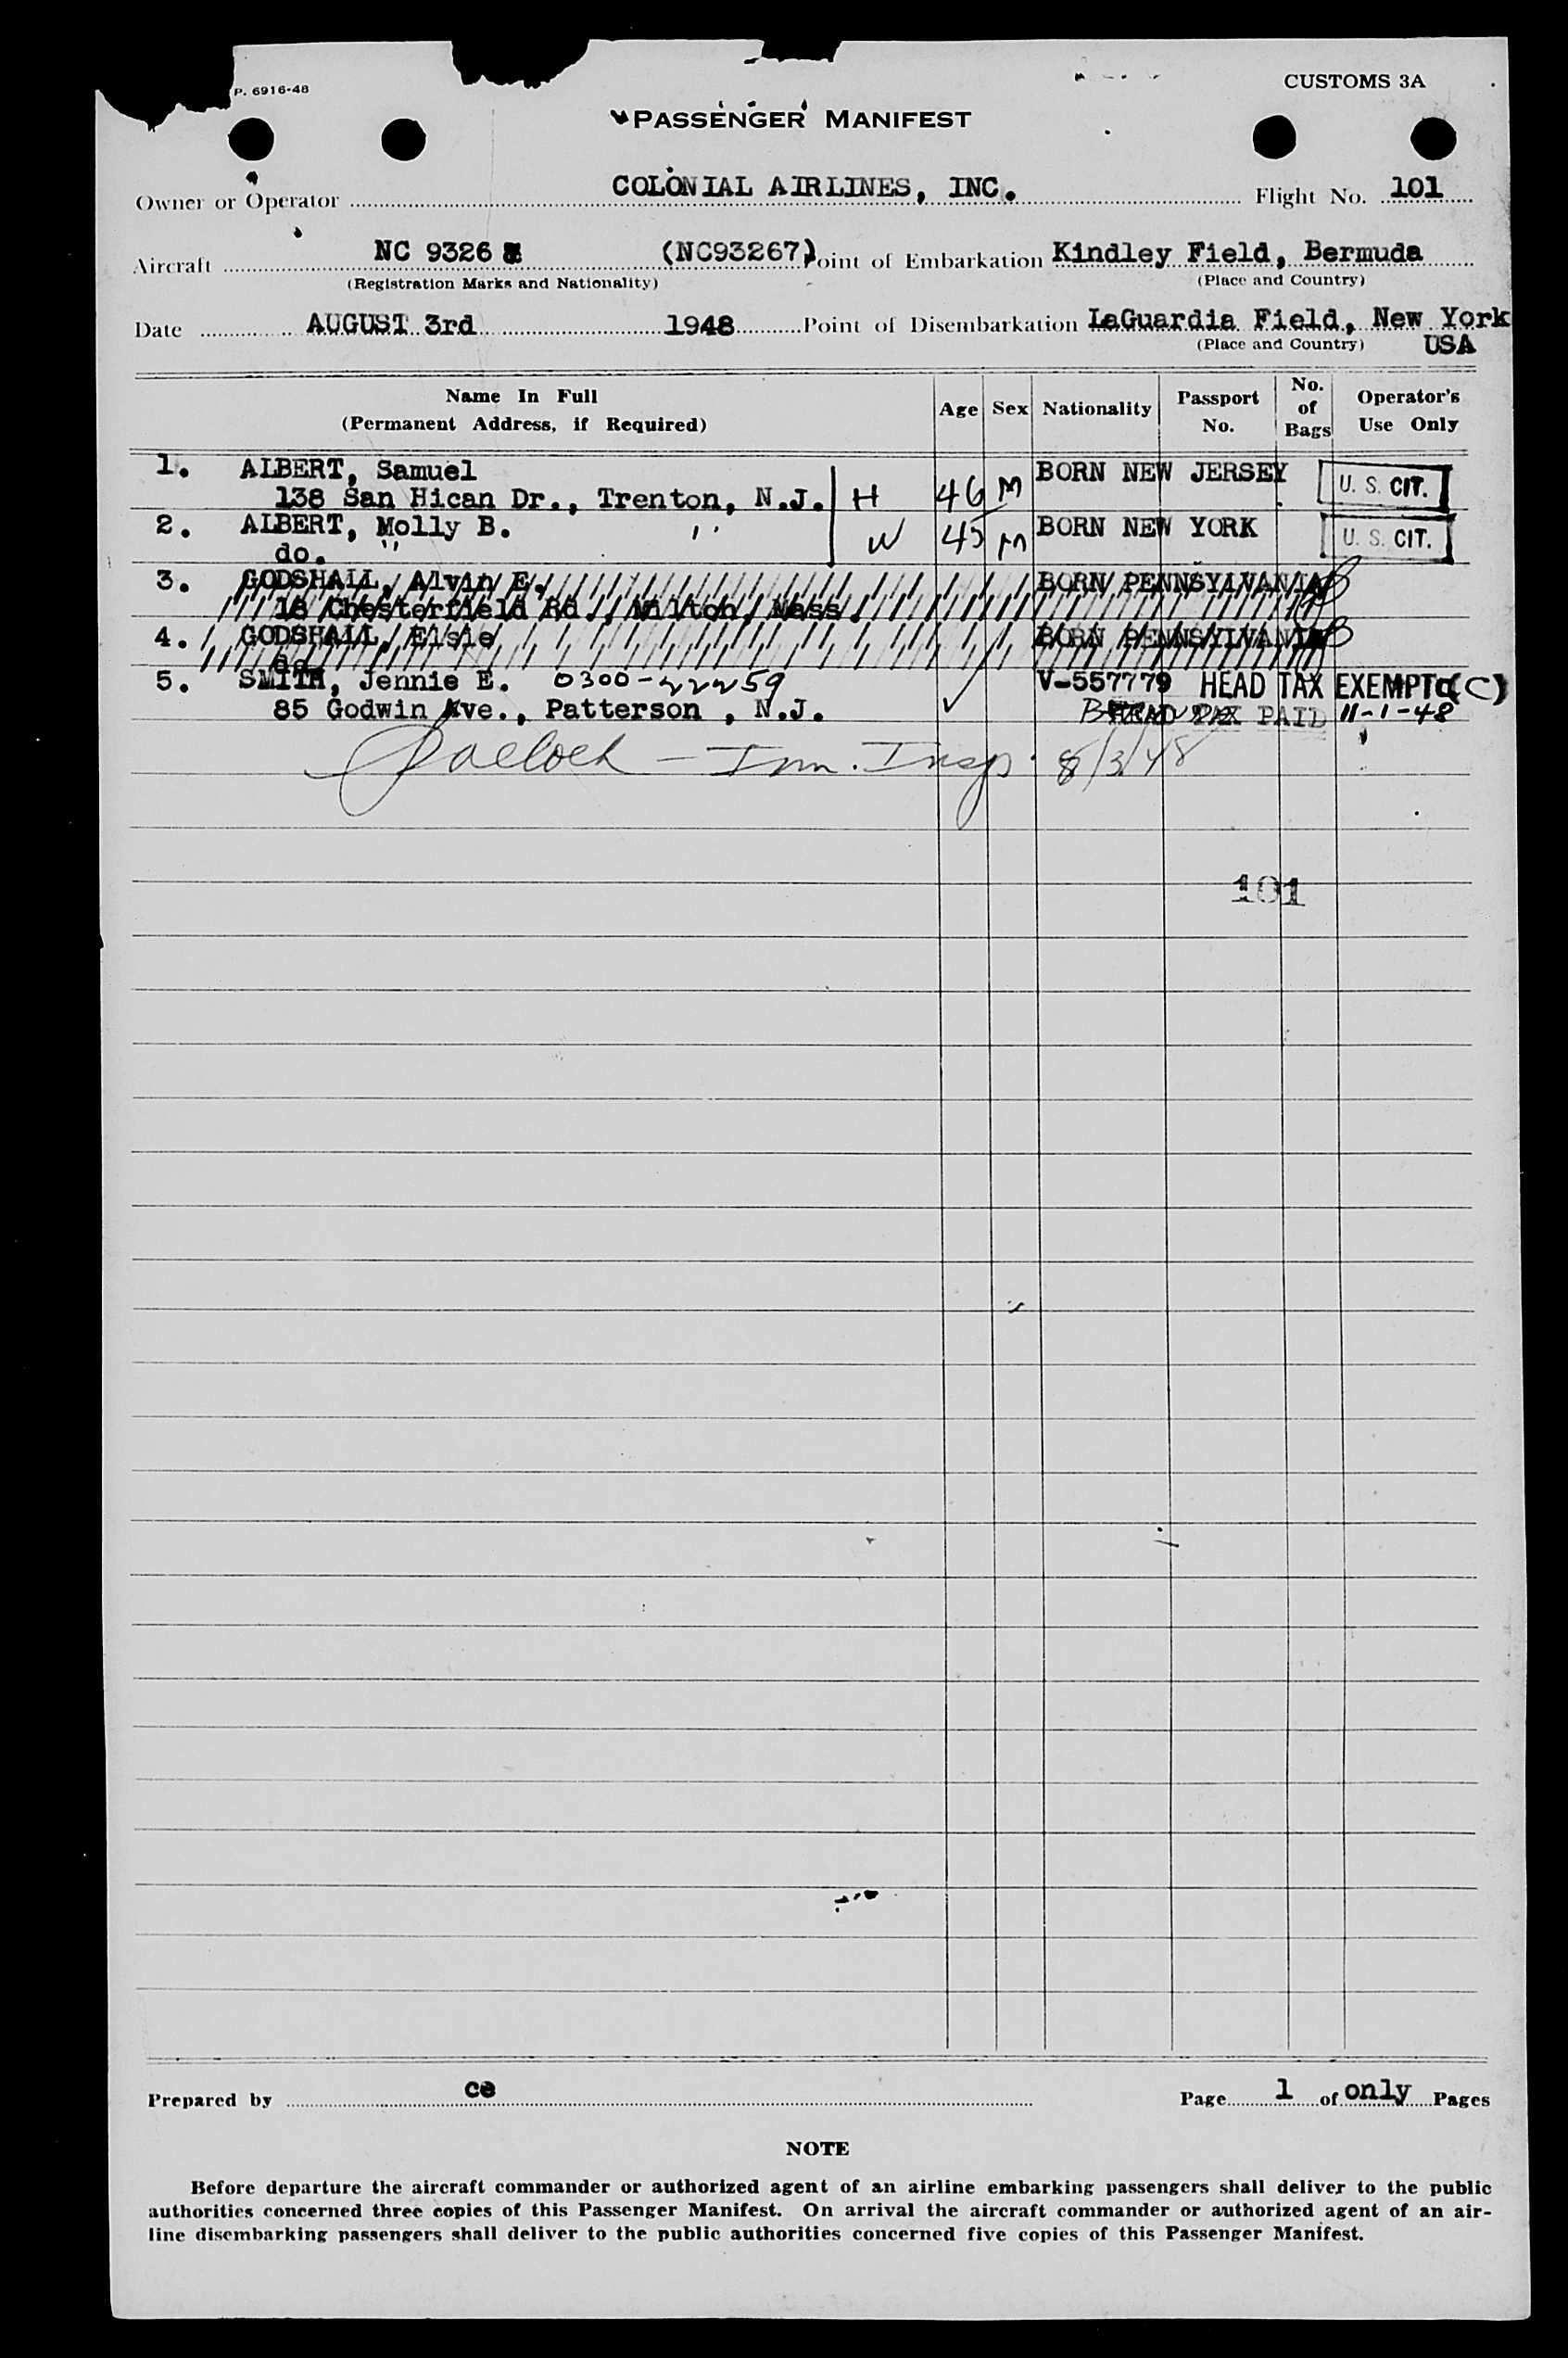 P. 6916-48
CUSTOMS 3A
PASSENGER MANIFEST
Owner or Operator COLONIAL AIRLINES, INC. Flight No. 101
Aircraft NC 9326 (NC93267) Point of Embarkation Kindley Field, Bermuda
(Registration Marks and Nationality) (Place and Country)
Date AUGUST 3rd 1948 Point of Disembarkation LaGuardia Field, New York
(Place and Country) USA
Name In Full (Permanent Address, if Required) Age Sex Nationality Passport No. No. of Bags Operator's Use Only
1. ALBERT, Samuel BORN NEW JERSEY U. S. CIT.
138 San Hican Dr., Trenton, N.J. H 46 M
2. ALBERT, Molly B. " BORN NEW YORK U. S. CIT.
do. " W 45 M
3. GODSHALL, Alvin E. BORN PENNSYLVANIA
18 Chesterfield Rd., Milton, Mass.
4. GODSHALL, Elsie BORN PENNSYLVANIA
do.
5. SMITH, Jennie E. 0300-22259 V-557779 HEAD TAX EXEMPT (C)
85 Godwin Ave., Patterson , N.J. HEAD TAX PAID 11-1-48
Imm. Insp. 8/3/48
101
Prepared by ce Page 1 of only Pages
NOTE
Before departure the aircraft commander or authorized agent of an airline embarking passengers shall deliver to the public
authorities concerned three copies of this Passenger Manifest. On arrival the aircraft commander or authorized agent of an air-
line disembarking passengers shall deliver to the public authorities concerned five copies of this Passenger Manifest.